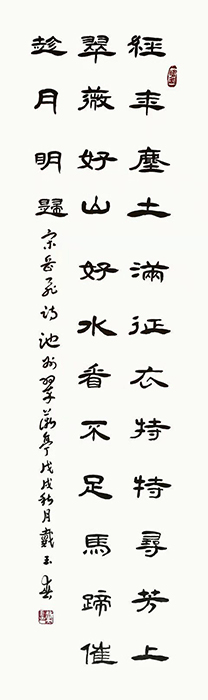 經年塵土滿征衣特特尋芳上
翠薇好山好水看不足馬蹄催
趁月明歸
宋岳飛詩池州翠薇亭戊戌秋月戴玉